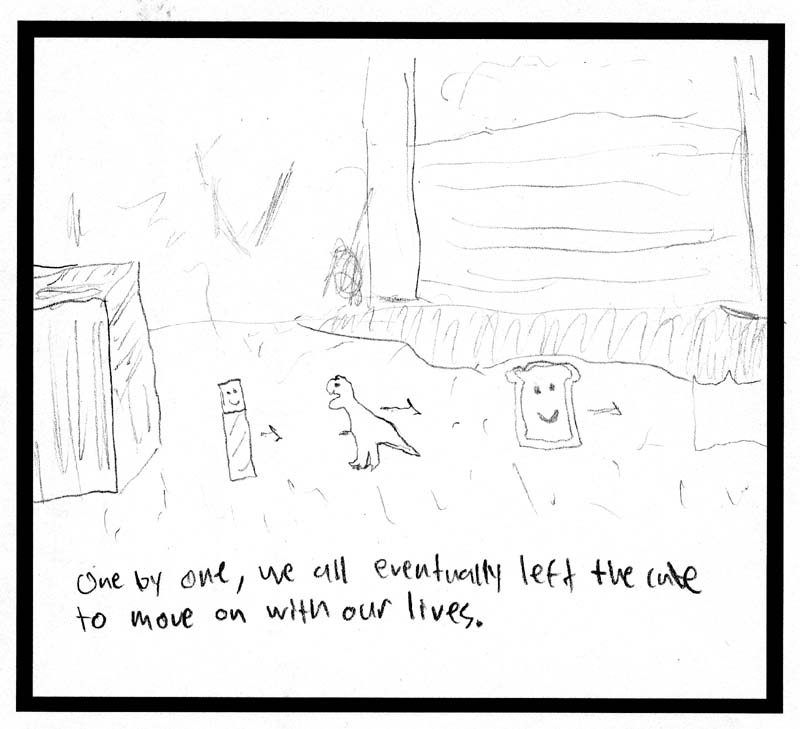 One by one, we all eventually left the cube
to move on with our lives.